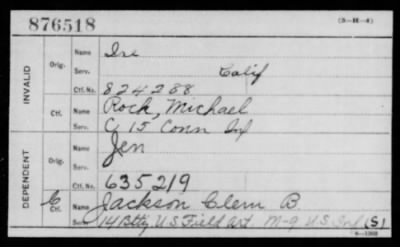 876518
(3-H-4)
INVALID
Orig.
Name Ire
Serv. Calif
Ctf. No. 824288
Ctf.
Name Rock, Michael
Serv. C, 15 Conn Inf
DEPENDENT
Orig.
Name Jen
Serv.
Ctf. No. 635219
C
Ctf.
Name Jackson Clem B
Serv. 14 Btty U.S. Field Art. M-9 U.S. Inf (S)